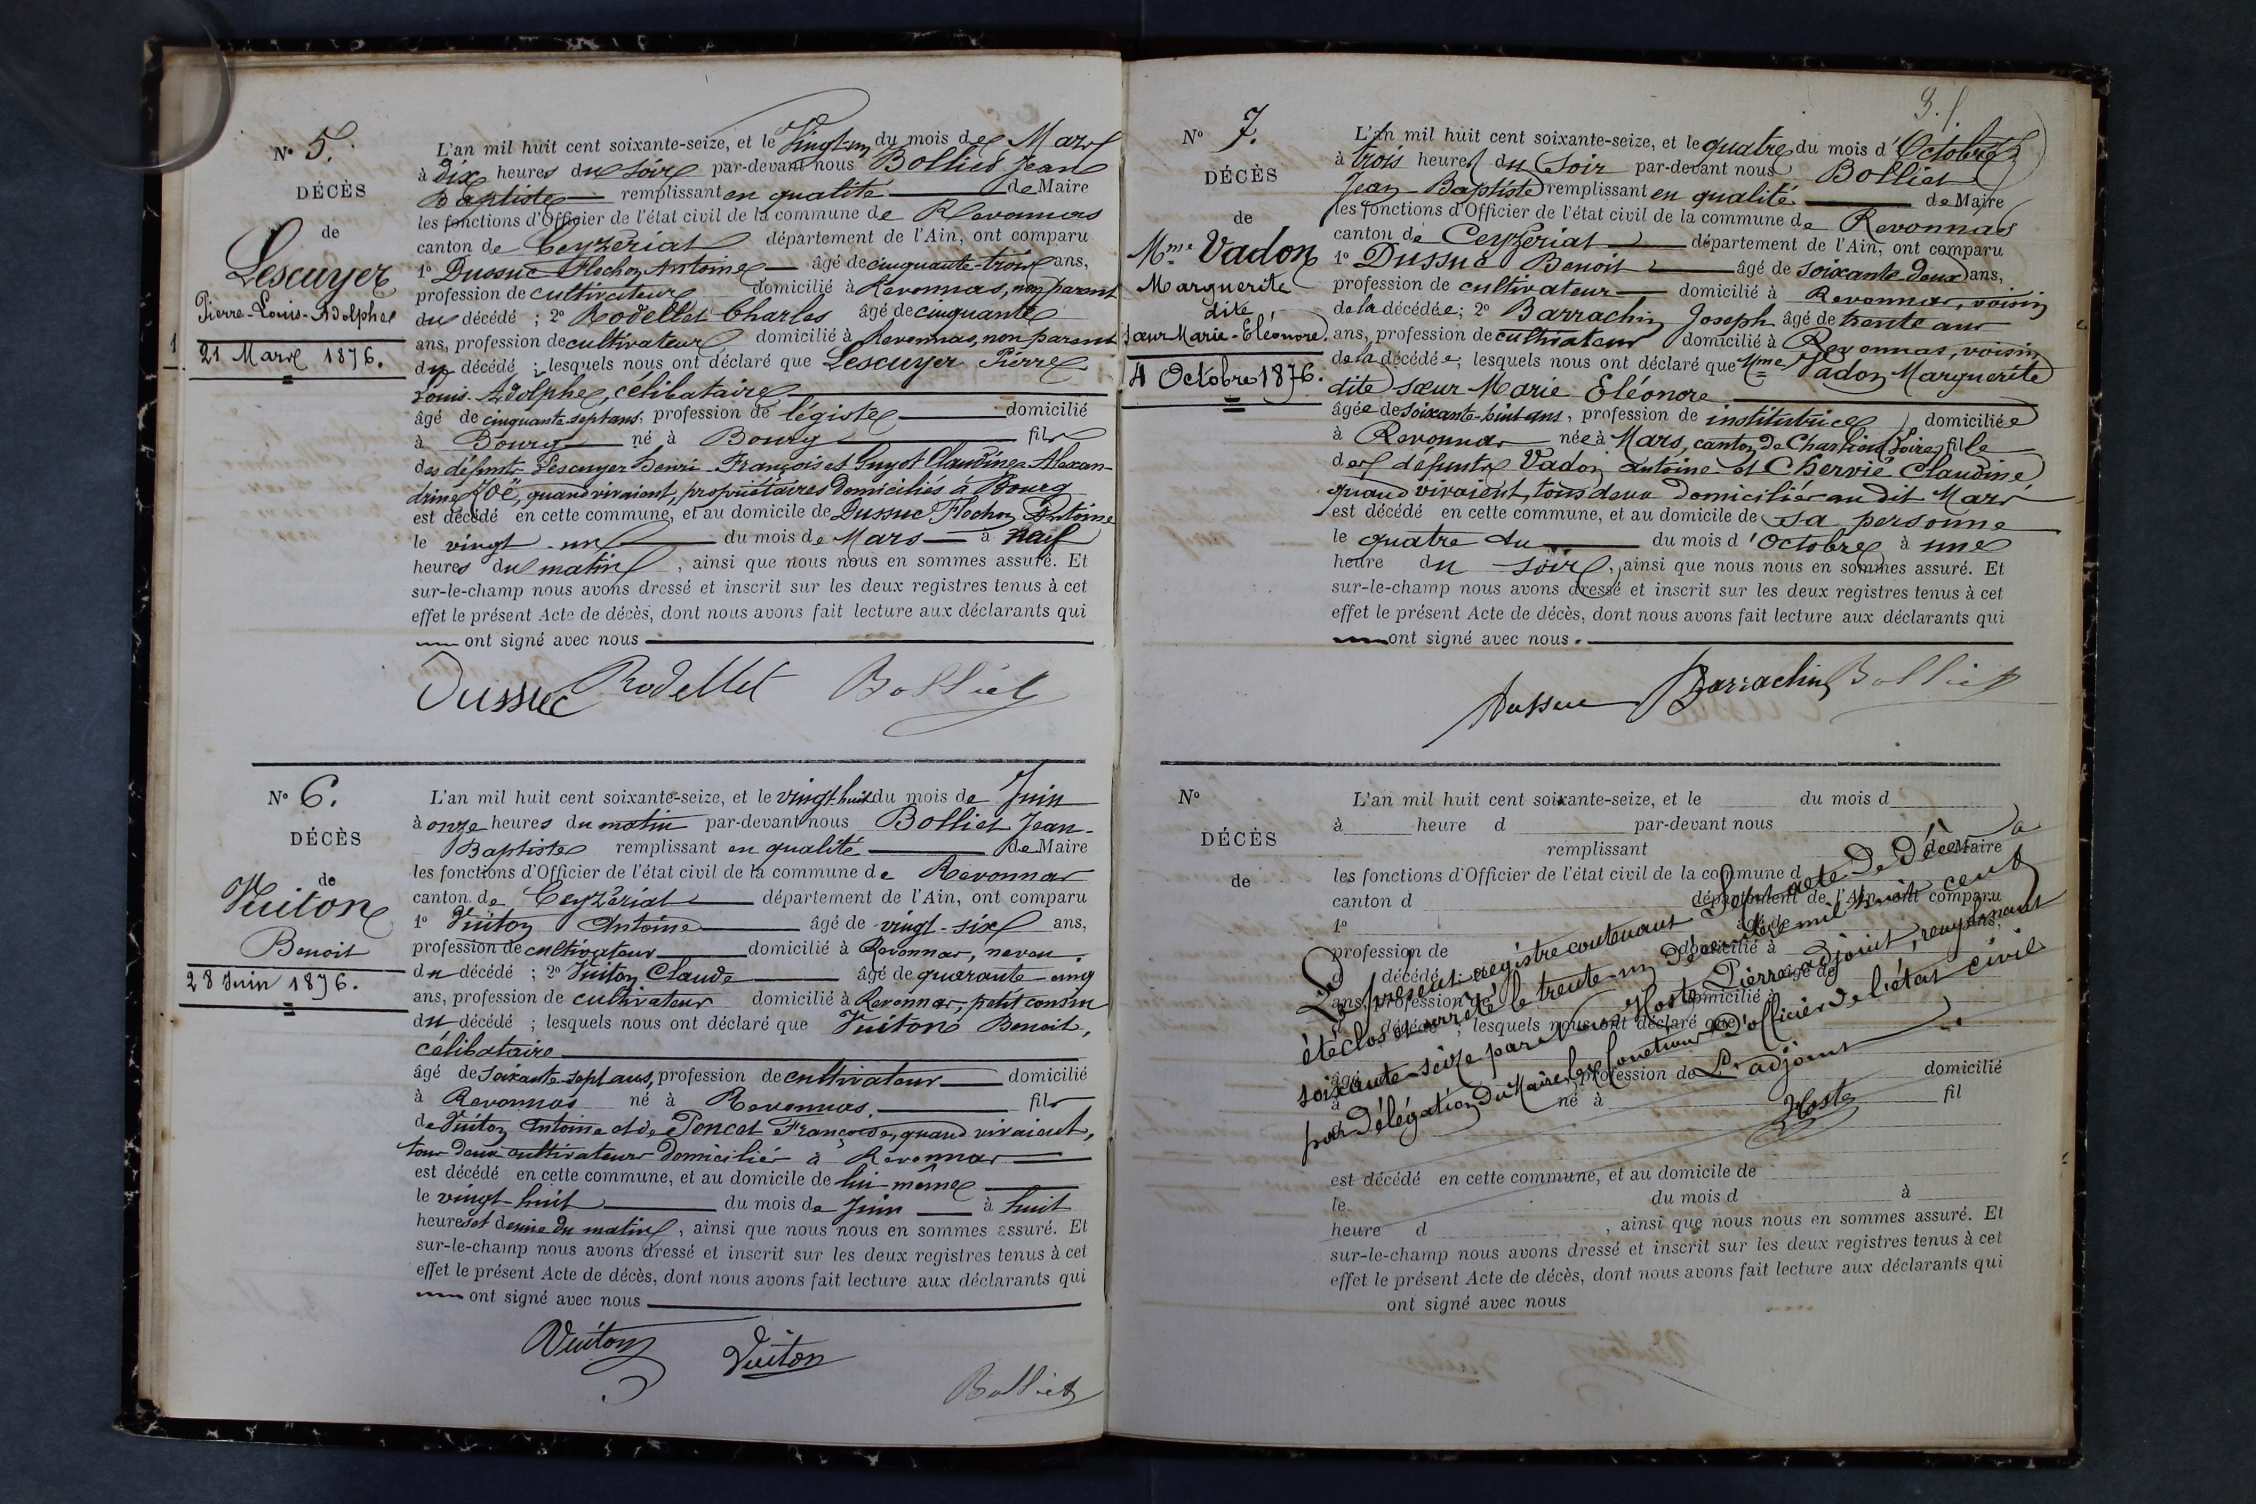 N° 5.
DÉCÈS
de
Lescuyer
Pierre-Louis-Adolphe
21 Mars 1876.
L'an mil huit cent soixante-seize, et le Vingt-un du mois de Mars
à dix heures du soir par-devant nous Bolliet Jean
Baptiste remplissant en qualité de Maire
les fonctions d'Officier de l'état civil de la commune de Revonnas
canton de Ceyzériat département de l'Ain, ont comparu
1° Dussuc Flochon Antoine âgé de cinquante-trois ans,
profession de cultivateur domicilié à Revonnas, non parent
du décédé ; 2° Rodellet Charles âgé de cinquante
ans, profession de cultivateur domicilié à Revonnas, non parent
du décédé ; lesquels nous ont déclaré que Lescuyer Pierre
Louis-Adolphe, célibataire
âgé de cinquante-sept ans, profession de légiste domicilié
à Bourg né à Bourg fils
des défunts Lescuyer Henri-François et Guyot Claudine-Alexan-
drine Zoë, quand vivaient, propriétaires domiciliés à Bourg
est décédé en cette commune, et au domicile de Dussuc Flochon Antoine
le vingt-un du mois de Mars à neuf
heures du matin, ainsi que nous nous en sommes assuré. Et
sur-le-champ nous avons dressé et inscrit sur les deux registres tenus à cet
effet le présent Acte de décès, dont nous avons fait lecture aux déclarants qui
ont signé avec nous
Dussuc Rodellet Bolliet
N° 6.
DÉCÈS
de
Vuiton
Benoit
28 Juin 1876.
L'an mil huit cent soixante-seize, et le vingt-huit du mois de Juin
à onze heures du matin par-devant nous Bolliet Jean-
Baptiste remplissant en qualité de Maire
les fonctions d'Officier de l'état civil de la commune de Revonnas
canton de Ceyzériat département de l'Ain, ont comparu
1° Vuiton Antoine âgé de vingt-six ans,
profession de cultivateur domicilié à Revonnas, neveu
du décédé ; 2° Vuiton Claude âgé de quarante-cinq
ans, profession de cultivateur domicilié à Revonnas, petit cousin
du décédé ; lesquels nous ont déclaré que Vuiton Benoit,
célibataire
âgé de soixante-sept ans, profession de cultivateur domicilié
à Revonnas né à Revonnas. fils
de Vuiton Antoine et de Poncet Françoise, quand vivaient,
tous deux cultivateurs domiciliés à Revonnas
est décédé en cette commune, et au domicile de lui-même
le vingt-huit du mois de Juin à huit
heures et demie du matin, ainsi que nous nous en sommes assuré. Et
sur-le-champ nous avons dressé et inscrit sur les deux registres tenus à cet
effet le présent Acte de décès, dont nous avons fait lecture aux déclarants qui
ont signé avec nous
Vuiton Vuiton
Bolliet
N° 7.
DÉCÈS
de
Mme Vadon
Marguerite
dite
sœur Marie-Eléonore.
4 Octobre 1876.
L'an mil huit cent soixante-seize, et le quatre du mois d'Octobre
à trois heures du soir par-devant nous Bolliet
Jean-Baptiste remplissant en qualité de Maire
les fonctions d'Officier de l'état civil de la commune de Revonnas
canton de Ceyzériat département de l'Ain, ont comparu
1° Dussuc Benoit âgé de soixante-deux ans,
profession de cultivateur domicilié à Revonnas, voisin
de la décédée ; 2° Barrachin Joseph âgé de trente ans
ans, profession de cultivateur domicilié à Revonnas, voisin
de la décédée ; lesquels nous ont déclaré que Mme Vadon Marguerite
dite sœur Marie Eléonore
âgée de soixante-huit ans, profession de institutrice domiciliée
à Revonnas née à Mars, canton de Charlieu (Loire) fille
des défunts Vadon Antoine et Chervié Claudine,
quand vivaient, tous deux domiciliés au dit Mars
est décédé en cette commune, et au domicile de sa personne
le quatre du du mois d'Octobre à une
heure du soir, ainsi que nous nous en sommes assuré. Et
sur-le-champ nous avons dressé et inscrit sur les deux registres tenus à cet
effet le présent Acte de décès, dont nous avons fait lecture aux déclarants qui
ont signé avec nous.
Dussuc Barrachin Bolliet
N°
DÉCÈS
de
L'an mil huit cent soixante-seize, et le du mois d
à heure d par-devant nous
remplissant de Maire
les fonctions d'Officier de l'état civil de la commune d
canton d département de l'Ain, ont comparu
1° âgé de ans,
profession de domicilié à
d décédé ; 2° âgé de
ans, profession de domicilié à
d décédé ; lesquels nous ont déclaré que
âgé de profession de domicilié
à né à fil
Le présent registre contenant Sept acte de décès a
été clos et arrêté le trente-un Décembre mil huit cent
soixante-seize par Nous Hoste Pierre adjoint, remplissant
par délégation du Maire les fonctions d'officier de l'état civil
L'adjoint
Hoste
est décédé en cette commune, et au domicile de
le du mois d à
heure d , ainsi que nous nous en sommes assuré. Et
sur-le-champ nous avons dressé et inscrit sur les deux registres tenus à cet
effet le présent Acte de décès, dont nous avons fait lecture aux déclarants qui
ont signé avec nous